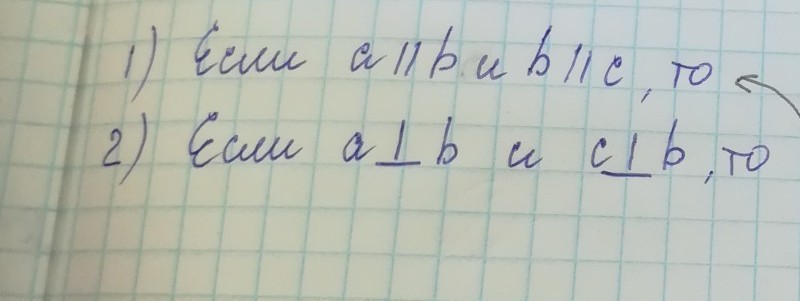 1) Если a || b и b || c, то
2) Если a ⊥ b и c ⊥ b, то